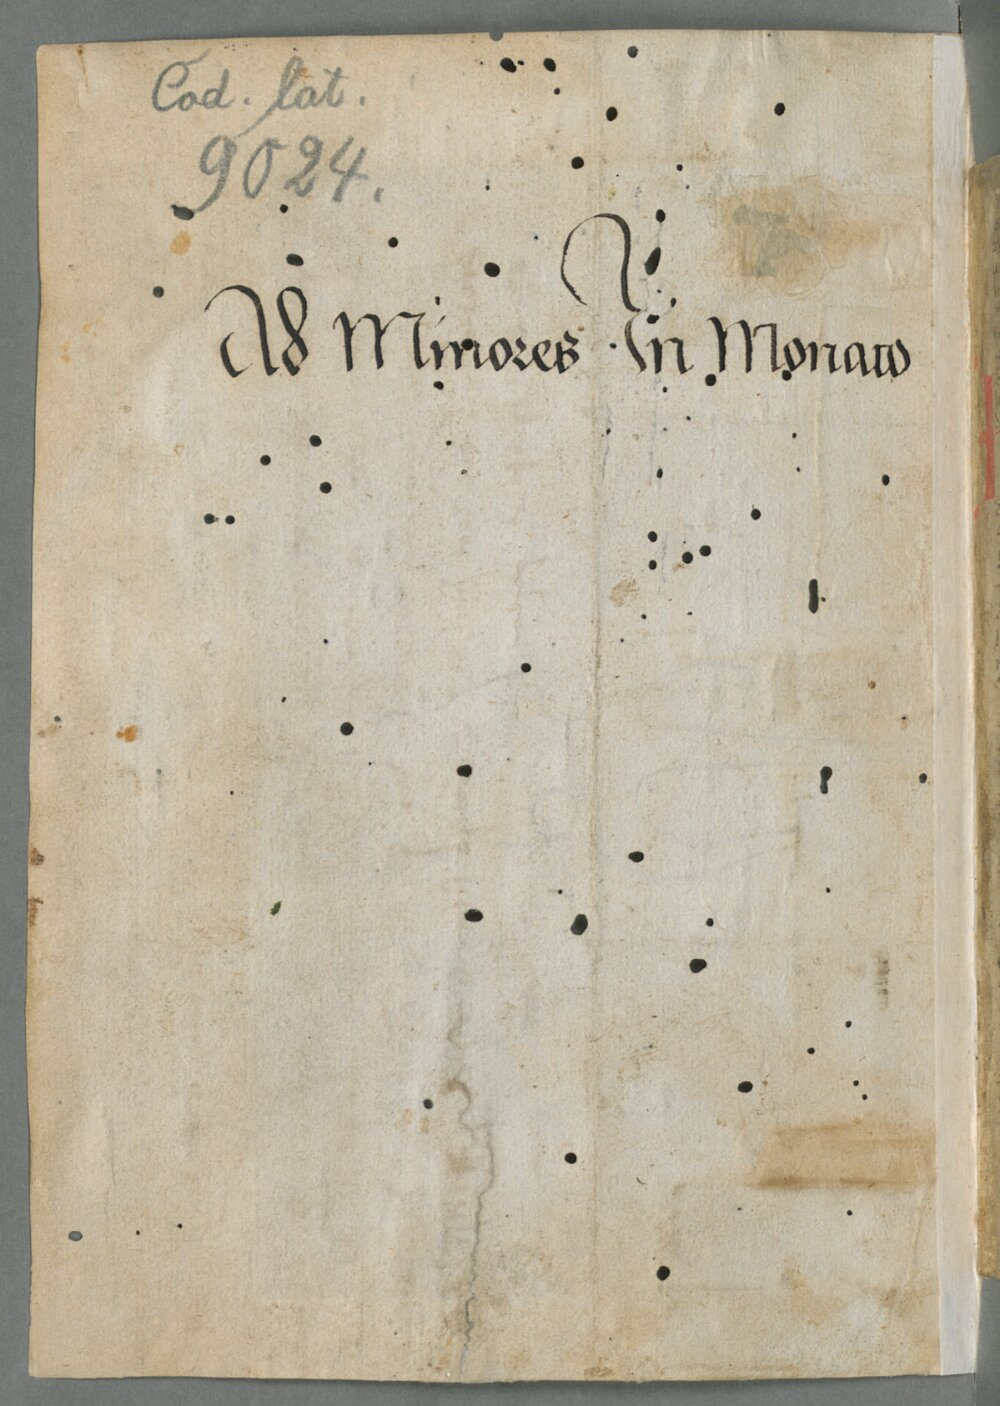 Cod. lat.
9024.
Ad Minores In Monaco